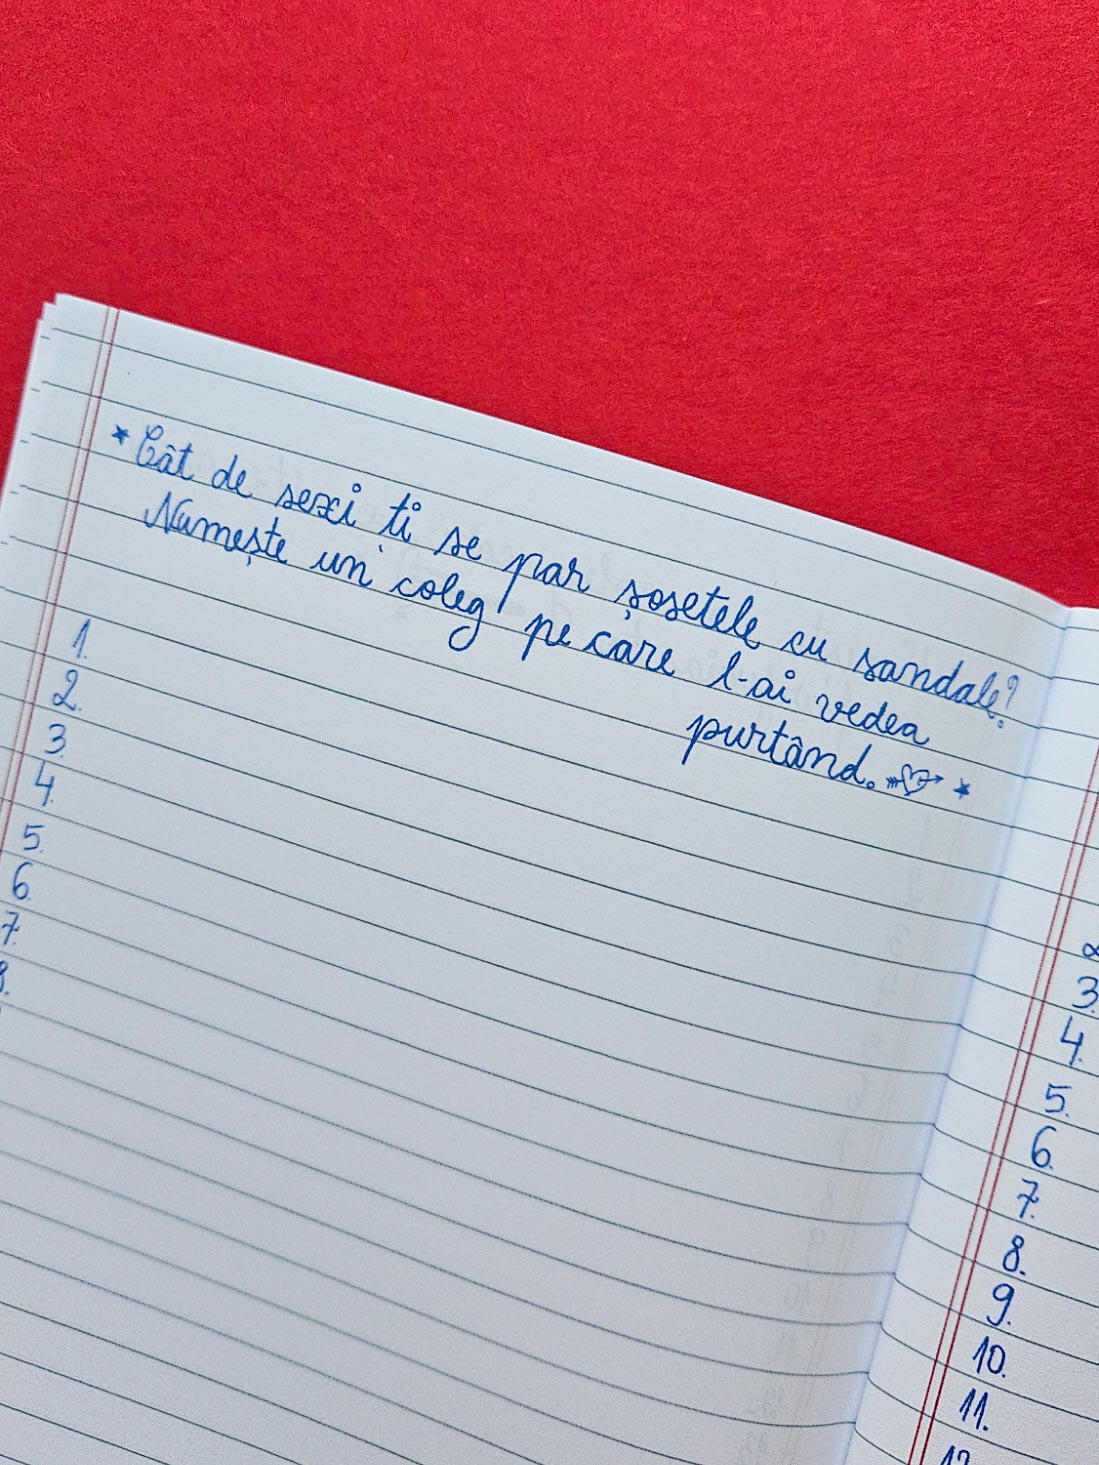 * Cât de sexi ți se par șosetele cu sandale?
Numește un coleg pe care l-ai vedea
purtând. *
1.
2.
3.
4.
5.
6.
7.
8.
3.
4.
5.
6.
7.
8.
9.
10.
11.
12.